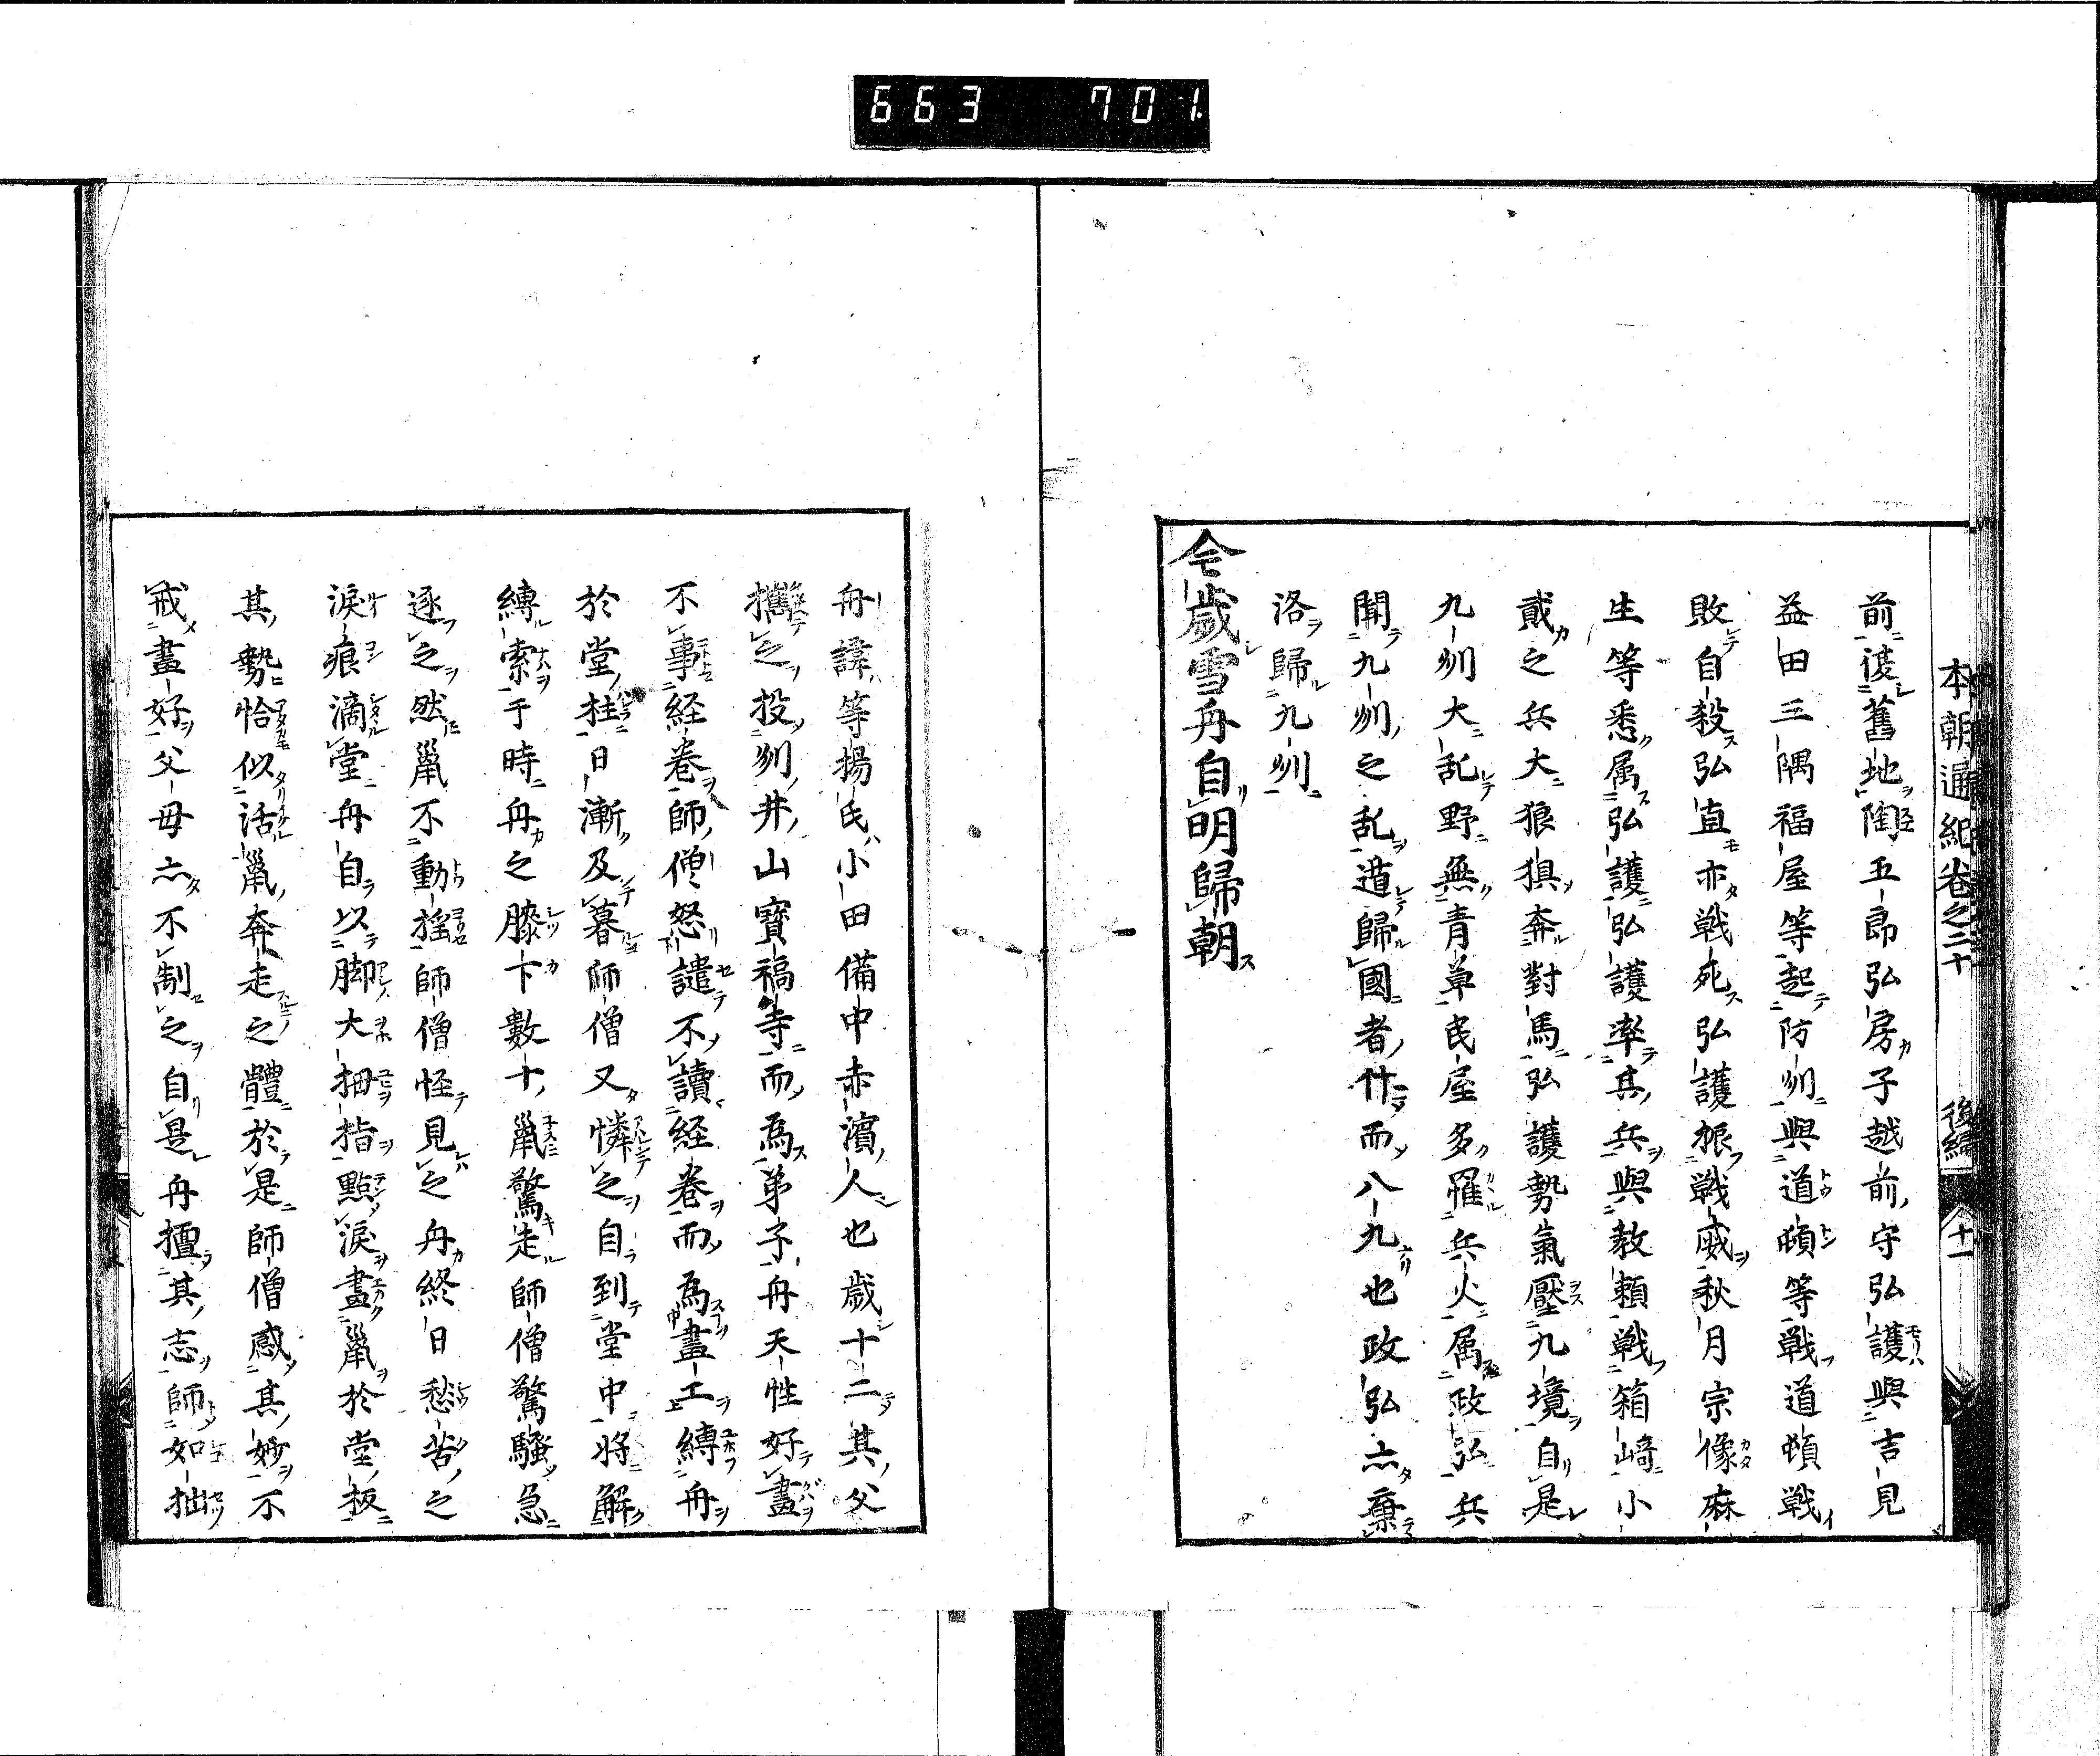 663 701
本朝通紀卷之二十 後編 十一
前復舊地陶五郎弘房子越前守弘護與吉見
益田三隅福屋等起防刕與道頓等戦道頓戦
敗自殺弘直亦戦死弘護振戦威秋月宗像麻
生等悉属弘護弘護率其兵與教頼戦箱﨑小
貳之兵大狼狽奔對馬弘護勢氣壓九境自是
九刕大乱野無青草民屋多罹兵火属政弘兵
聞九刕之乱遁歸國者什而八九也政弘亦棄
洛歸九刕
今歳雪舟自明歸朝
舟諱等揚氏小田備中赤濱人也歳十二其父
攜之投刕井山寶福寺而為弟子舟天性好畫
不事経卷師僧怒譴不讀経卷而為畫工縛舟
於堂柱日漸及暮師僧又憐之自到堂中将解
縛索于時舟之膝下數十䑕驚走師僧驚騒急
逐之然䑕不動揺師僧怪見之舟終日愁苦之
淚痕滴堂舟自以脚大拇指點淚畫䑕於堂板
其勢恰似活䑕奔走之體於是師僧感其妙不
戒畫好父母亦不制之自是舟擅其志師如拙